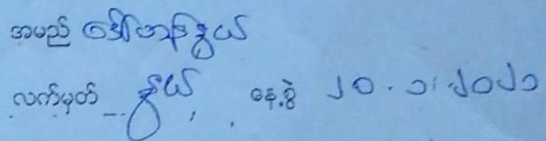 အမည် ဒေါ်ဟန်နွယ်
လက်မှတ် နွယ် နေ့စွဲ ၂၀.၁.၂၀၂၁